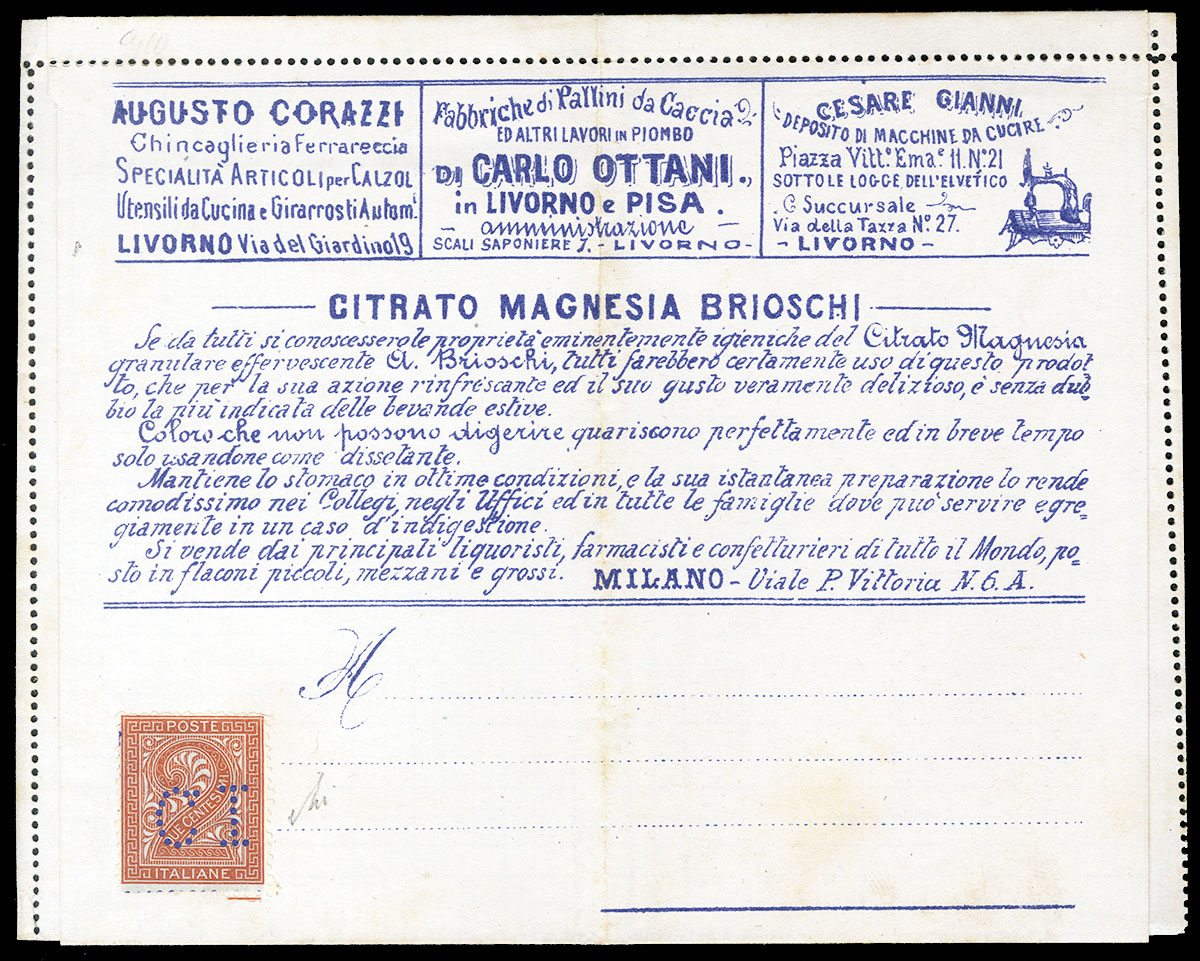 AUGUSTO CORAZZI
Chincaglieria Ferrareccia
SPECIALITÀ ARTICOLI per CALZOL
Utensili da Cucina e Girarrosti Autom.
LIVORNO Via del Giardino 19
Fabbriche di Pallini da Caccia
ED ALTRI LAVORI IN PIOMBO
DI CARLO OTTANI.,
in LIVORNO e PISA.
- amministrazione -
SCALI SAPONIERE 7. - LIVORNO -
CESARE GIANNI
DEPOSITO DI MACCHINE DA CUCIRE
Piazza Vitt.º Ema.e II. N.º 21
SOTTO LE LOGGE DELL'ELVETICO
Succursale
Via della Tazza N.º 27.
- LIVORNO -
CITRATO MAGNESIA BRIOSCHI
Se da tutti si conoscessero le proprietà eminentemente igieniche del Citrato Magnesia
granulare effervescente A. Brioschi, tutti farebbero certamente uso di questo prodot
to, che per la sua azione rinfrescante ed il suo gusto veramente delizioso, è senza dub
bio la più indicata delle bevande estive.
Coloro che non possono digerire guariscono perfettamente ed in breve tempo
solo usandone come dissetante.
Mantiene lo stomaco in ottime condizioni, e la sua istantanea preparazione lo rende
comodissimo nei Collegi, negli Uffici ed in tutte le famiglie dove può servire egre-
giamente in un caso d'indigestione.
Si vende dai principali liquoristi, farmacisti e confetturieri di tutto il Mondo, po-
sto in flaconi piccoli, mezzani e grossi. MILANO - Viale P. Vittoria N. 6. A.
A
POSTE
2
DUE CENTESIMI
CI
ITALIANE